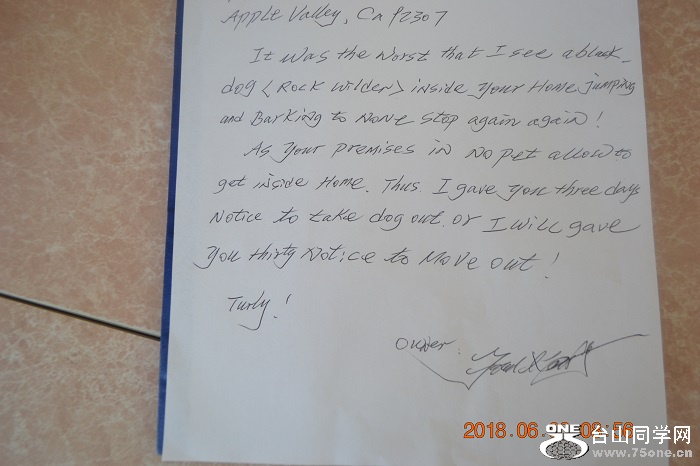 Apple Valley, Ca 92307
It was the worst that I see a black
dog <Rock wilder> inside your Home jumping
and Barking to none stop again again!
As your premises in no pet allow to
get inside Home. Thus. I gave you three days
Notice to take dog out or I will gave
you thirty Notice to Move out!
Turly!
Owner:
2018.06
ONE 台山同学网
www.75one.cn